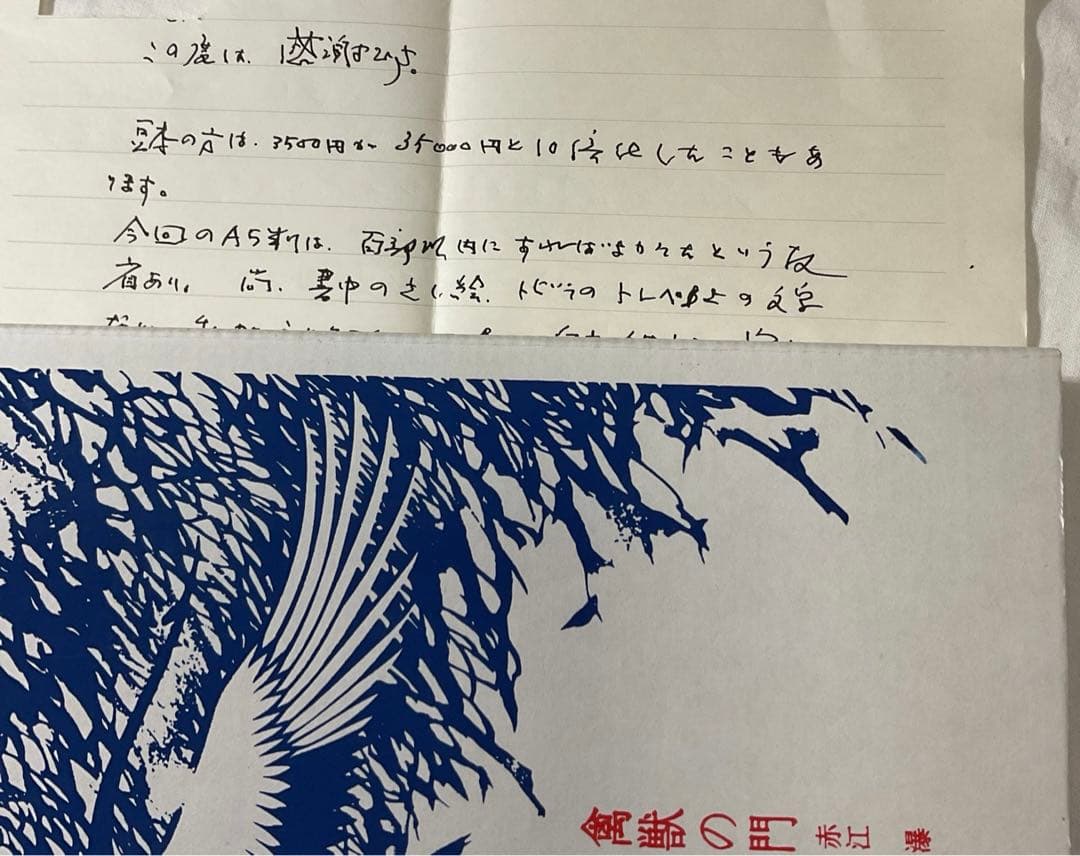 この度は、感謝ます。
豆本の方は、3500円が35000円と10倍化したこともあ
ります。
今回のA5判は、百部以内にすればよかったという反
省あり。尚、書中のさし絵、トビラのトレペ上の文字
禽獣の門 赤江 瀑